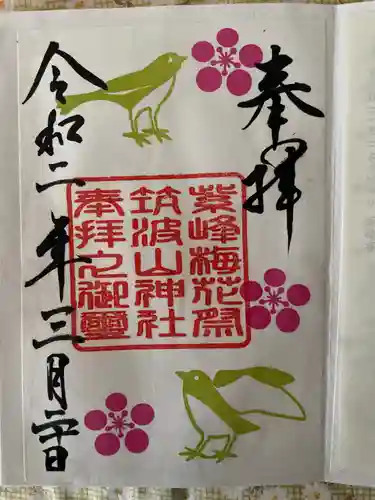 奉拝
紫峰梅花祭
筑波山神社
奉拝之御璽
令和二年三月